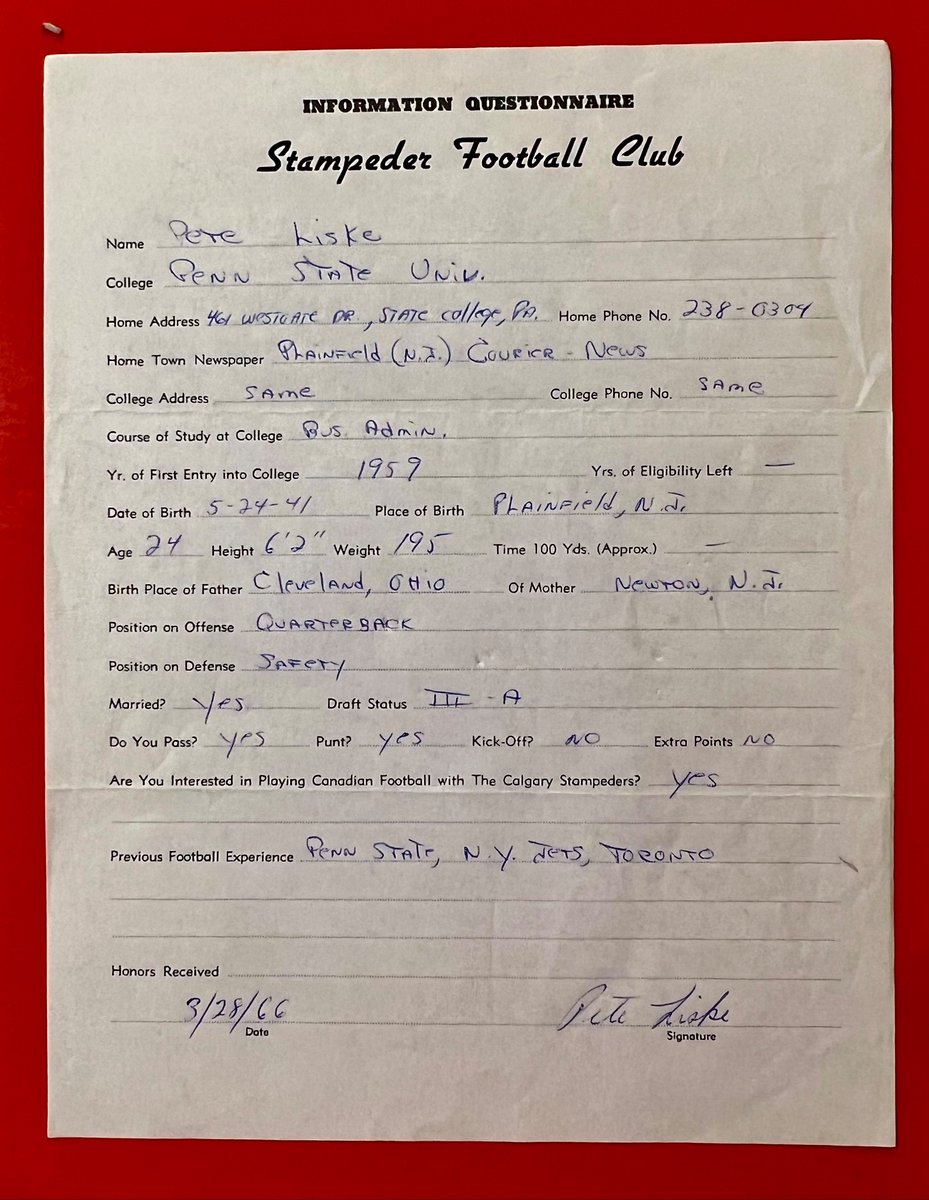 INFORMATION QUESTIONNAIRE
Stampeder Football Club
Name Pete Liske
College Penn State Univ.
Home Address 461 Westgate Dr, State College, Pa. Home Phone No. 238-0304
Home Town Newspaper Plainfield (N.J.) Courier-News
College Address Same College Phone No. Same
Course of Study at College Bus. Admin.
Yr. of First Entry into College 1959 Yrs. of Eligibility Left —
Date of Birth 5-24-41 Place of Birth Plainfield, N.J.
Age 24 Height 6'2" Weight 195 Time 100 Yds. (Approx.) —
Birth Place of Father Cleveland, Ohio Of Mother Newton, N.J.
Position on Offense Quarterback
Position on Defense Safety
Married? Yes Draft Status III-A
Do You Pass? Yes Punt? Yes Kick-Off? No Extra Points No
Are You Interested in Playing Canadian Football with The Calgary Stampeders? Yes
Previous Football Experience Penn State, N.Y. Jets, Toronto
Honors Received
3/28/66 Pete Liske
Date Signature